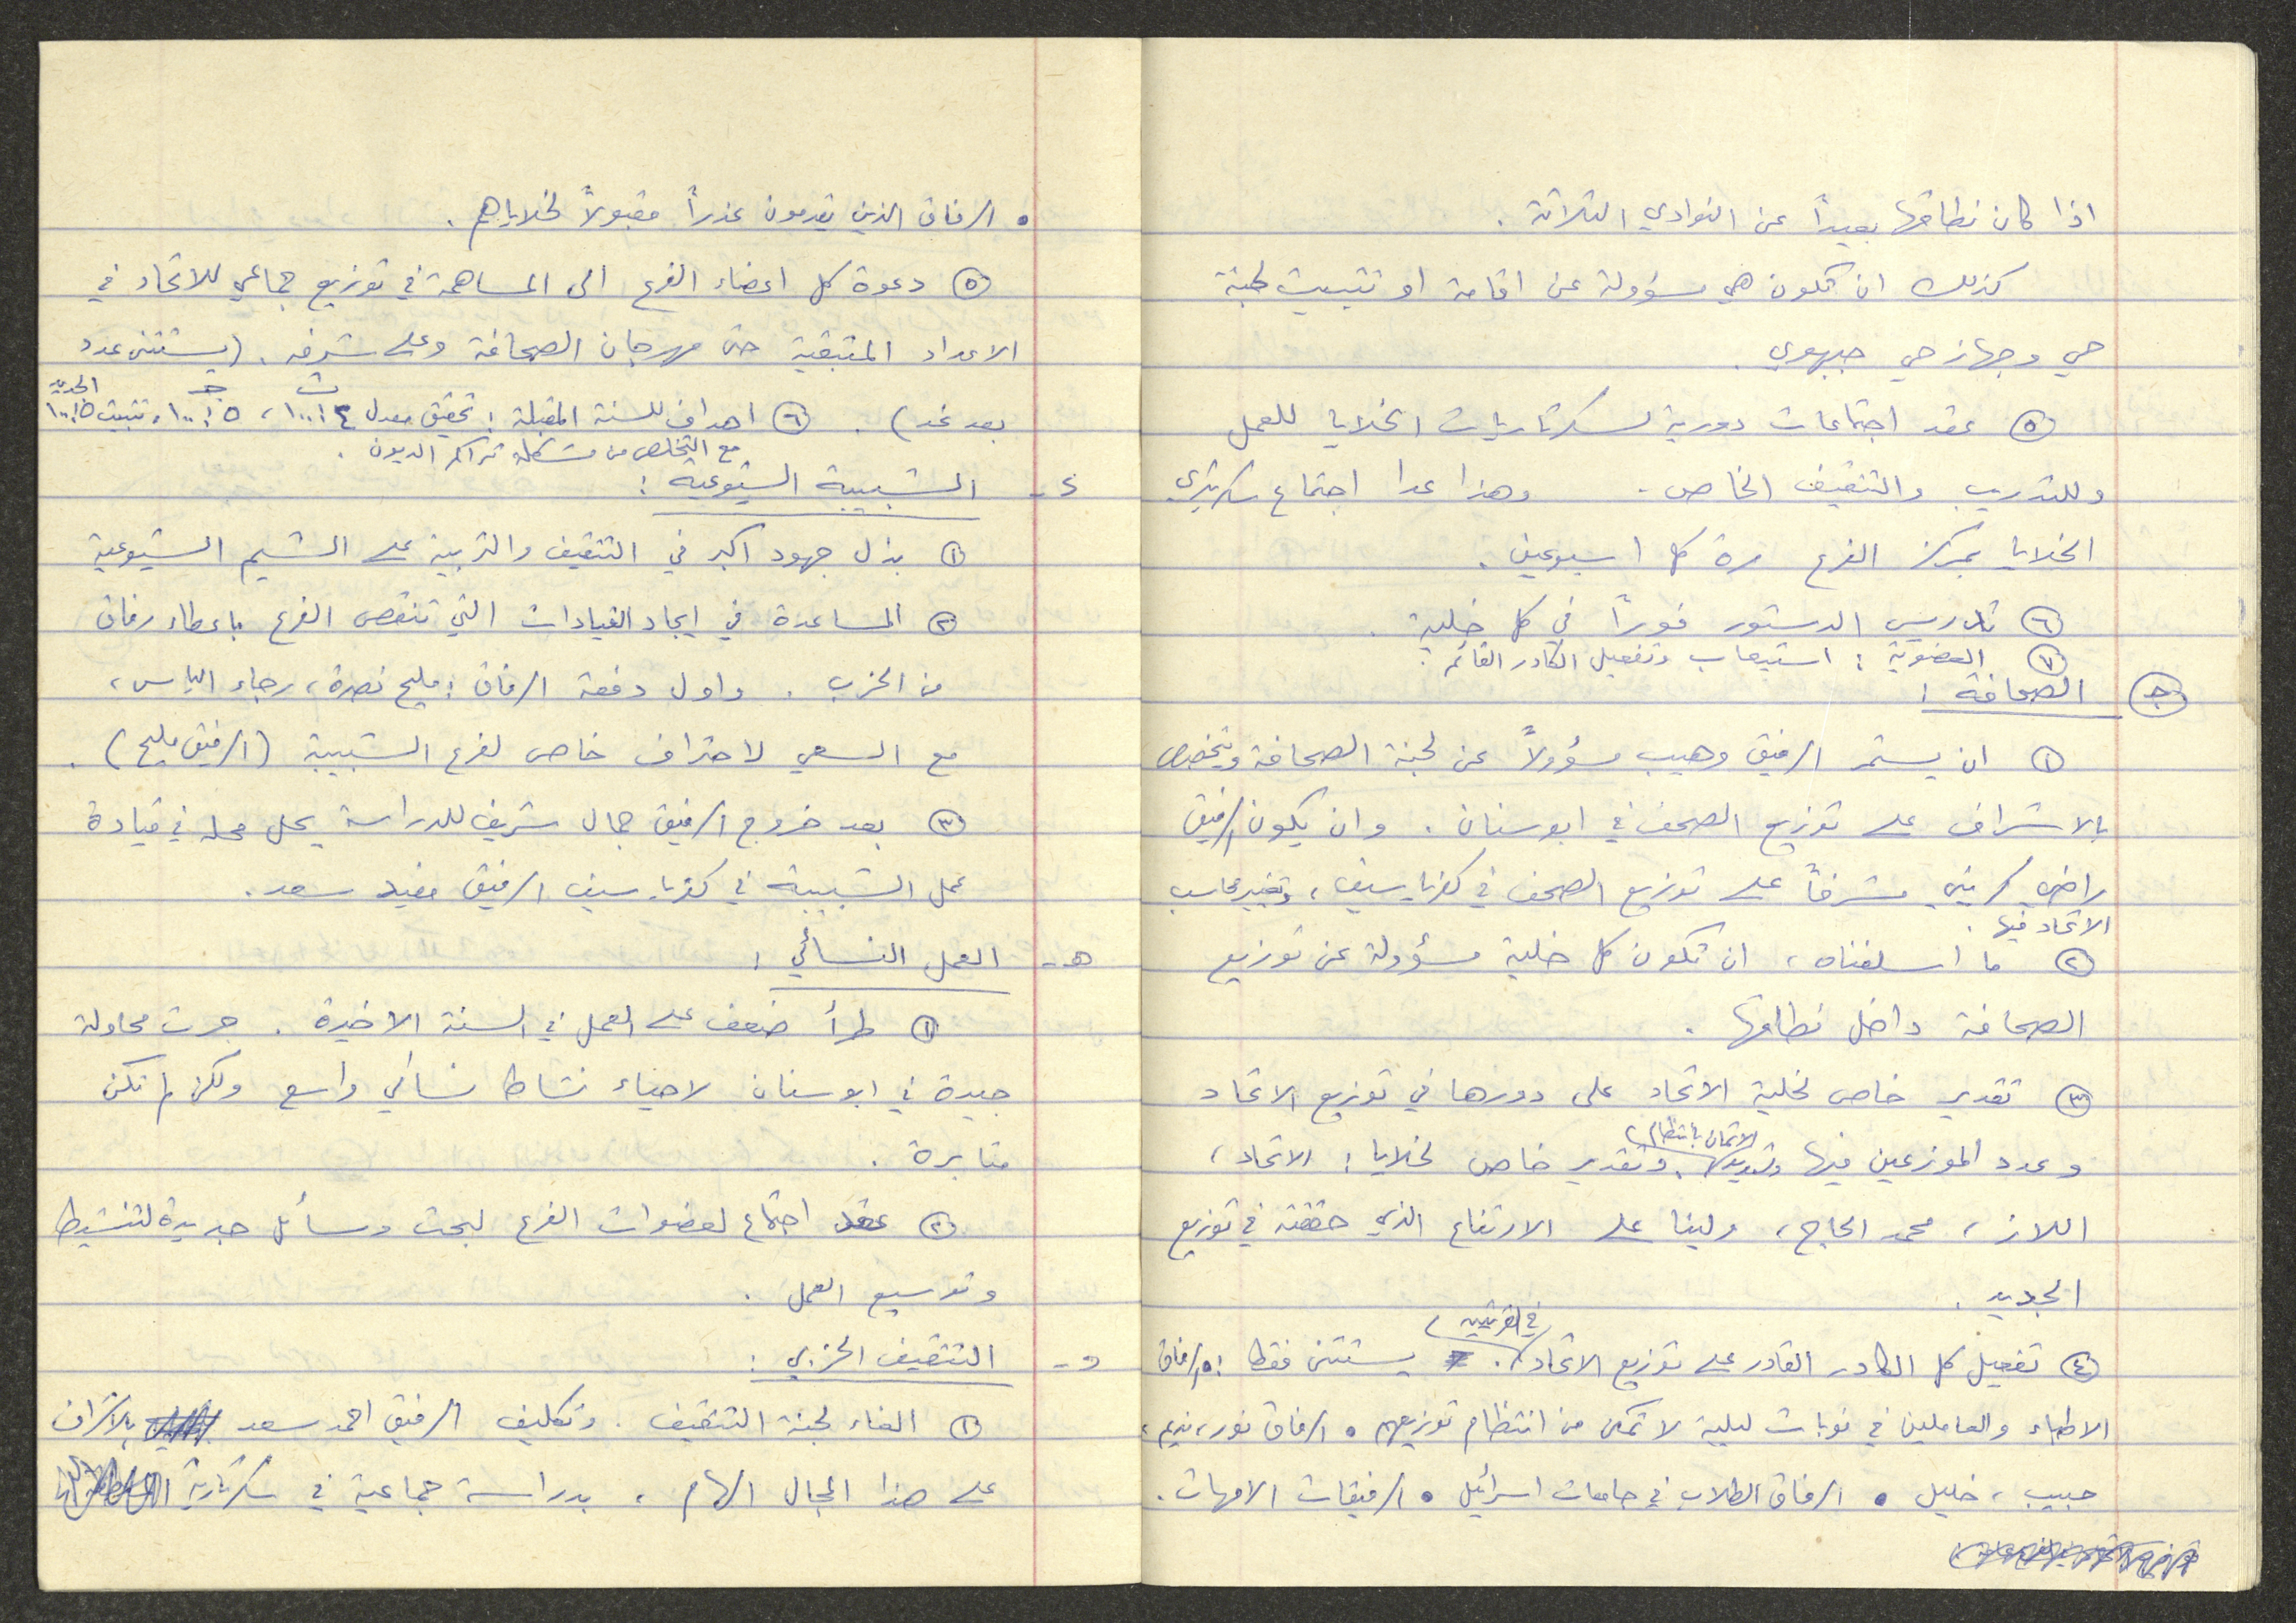 اذا كان نطاقها بعيداً عن النوادي الثلاثة .
كذلك ان تكون هي مسؤولة عن اقامة او تثبيت لجنة
حي وجهاز حي جبهوي .
⑤ عقد اجتماعات دورية لسكرتاريات الخلايا للعمل
وللتدريب والتثقيف الخاص . وهذا عدا اجتماع سكرتيري
الخلايا بمركز الفرع مرة كل اسبوعين .
⑥ تدريس الدستور فوراً في كل خلية .
⑦ العضوية : استيعاب وتفعيل الكادر القائم .
ج الصحافة :
① ان يستمر الرفيق وهيب مسؤولاً عن لجنة الصحافة ويتخصص
بالاشراف على توزيع الصحف في ابوسنان . وان يكون الرفيق
راضي كريني مشرفاً على توزيع الصحف في كفرياسيف ، وتغيير محاسب
الاتحاد فيها .
② ما اسلفناه ، ان تكون كل خلية مسؤولة عن توزيع
الصحافة داخل نطاقها .
③ تقدير خاص لخلية الاتحاد على دورها في توزيع الاتحاد
وعدد الموزعين فيها وتسديدها الاثمان بانتظام . وتقدير خاص لخلايا : الاتحاد ،
اللاز ، محمد الحاج ، ولينا على الارتفاع الذي حققته في توزيع
الجديد .
④ تفعيل كل الكادر القادر على توزيع الاتحاد في القريتين . يستثنى فقط : • الرفاق
الاطباء والعاملين في نوبات ليلية لا تمكن من انتظام توزيعهم • الرفاق نور ، نديم ،
حبيب ، خليل • الرفاق الطلاب في جامعات اسرائيل • الرفيقات الامهات .
• الرفاق الذين يقدمون عذراً مقبولاً لخلاياهم .
⑤ دعوة كل اعضاء الفرع الى المساهمة في توزيع جماعي للاتحاد في
الاعداد المتبقية حتى مهرجان الصحافة وعلى شرفه . (يستثنى عدد
بعد غد) . ⑥ اهداف للسنة المقبلة : تحقيق معدل ١٠٠:٤ ث ، ١٠٠:٥ ج ، تثبيت ١٠٠:٥ الجديد
مع التخلص من مشكلة تراكم الديون .
د - الشبيبة الشيوعية :
① بذل جهود اكبر في التثقيف والتربية على الشيم الشيوعية
② المساعدة في ايجاد القيادات التي تنقص الفرع باعطاء رفاق
من الحزب . واول دفعة الرفاق : مليح نصرة ، رجاء الياس ،
مع السعي لاحتراف خاص لفرع الشبيبة (الرفيق مليح) .
③ بعد خروج الرفيق جمال شريف للدراسة يحل محله في قيادة
عمل الشبيبة في كفرياسيف الرفيق مفيد سعد .
هـ - العمل النسائي :
① طرأ ضعف على العمل في السنة الاخيرة . جرت محاولة
جيدة في ابوسنان لاحياء نشاط نسائي واسع ولكن لم تكن
مثابرة .
② عقد اجتماع لعضوات الفرع لبحث وسائل جديدة لتنشيط
وتوسيع العمل .
و - التثقيف الحزبي :
① الغاء لجنة التثقيف . وتكليف الرفيق احمد سعد بالاشراف
على هذا المجال الهام ، بدراسة جماعية في سكرتارية